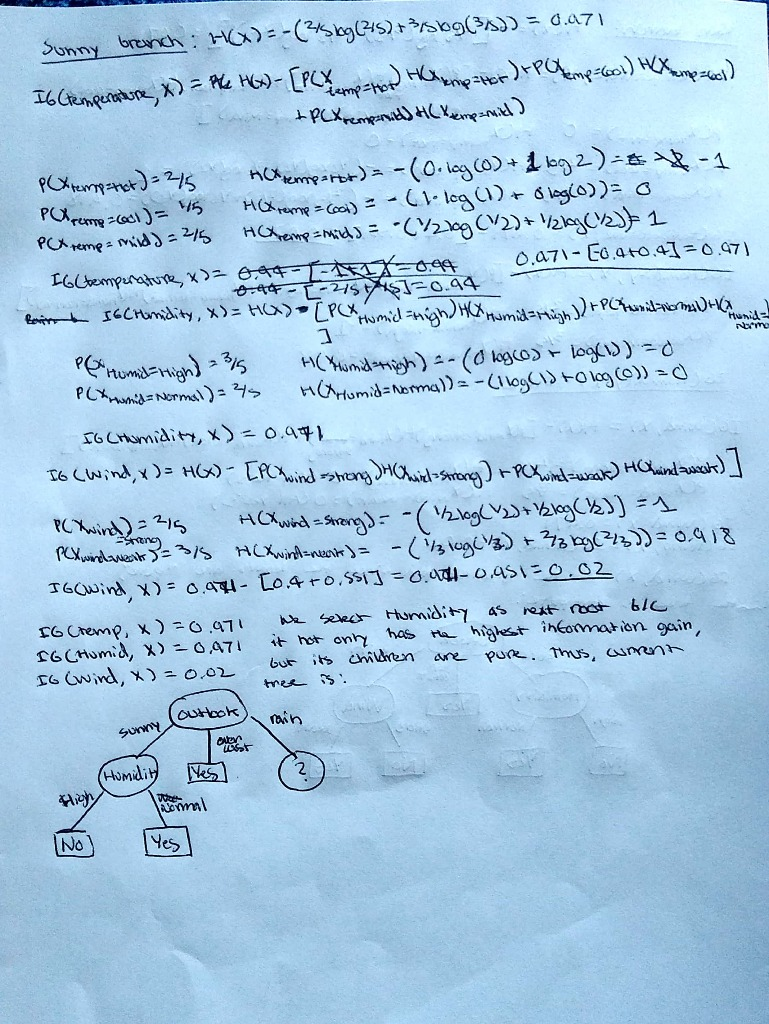 Sunny branch: H(X) = -(2/5 log(2/5) + 3/5 log(3/5)) = 0.971
IG(temperature, X) = H(X) - [P(X temp=Hot) H(X temp=Hot) + P(X temp=Cool) H(X temp=Cool)
+ P(X temp=mild) H(X temp=mild)
P(X temp=Hot) = 2/5 H(X temp=Hot) = -(0·log(0) + 1 log 2) = -1
P(X temp=cool) = 1/5 H(X temp=Cool) = -(1·log(1) + 0 log(0)) = 0
P(X temp=mild) = 2/5 H(X temp=mild) = -(1/2 log(1/2) + 1/2 log(1/2)) = 1
IG(temperature, X) = 0.94 - [-1+1] = 0.94 0.971 - [0.4+0.4] = 0.971
0.94 - [-2/5 + 2/5] = 0.94
IG(Humidity, X) = H(X) - [P(X Humid=High) H(X Humid=High)) + P(X Humid=normal) H(X Humid=Norma
]
P(X Humid=High) = 3/5 H(X Humid=High) = -(0 log(0) + log(1)) = 0
P(X Humid=Normal) = 2/5 H(X Humid=Normal)) = -(1 log(1) + 0 log(0)) = 0
IG(Humidity, X) = 0.971
IG(Wind, X) = H(X) - [P(X wind=strong) H(X wind=strong) + P(X wind=weak) H(X wind=weak)]
P(X wind=strong) = 2/5 H(X wind=strong) = -(1/2 log(1/2) + 1/2 log(1/2)] = 1
P(X wind=weak) = 3/5 H(X wind=weak) = -(1/3 log(1/3) + 2/3 log(2/3)) = 0.918
IG(Wind, X) = 0.971 - [0.4 + 0.551] = 0.971 - 0.951 = 0.02
IG(temp, X) = 0.971 We select Humidity as next root b/c
IG(Humid, X) = 0.971 it not only has the highest information gain,
IG(Wind, X) = 0.02 but its children are pure. Thus, current
tree is:
Outlook
sunny over cast rain
Humidit Yes ?
High Normal
No Yes